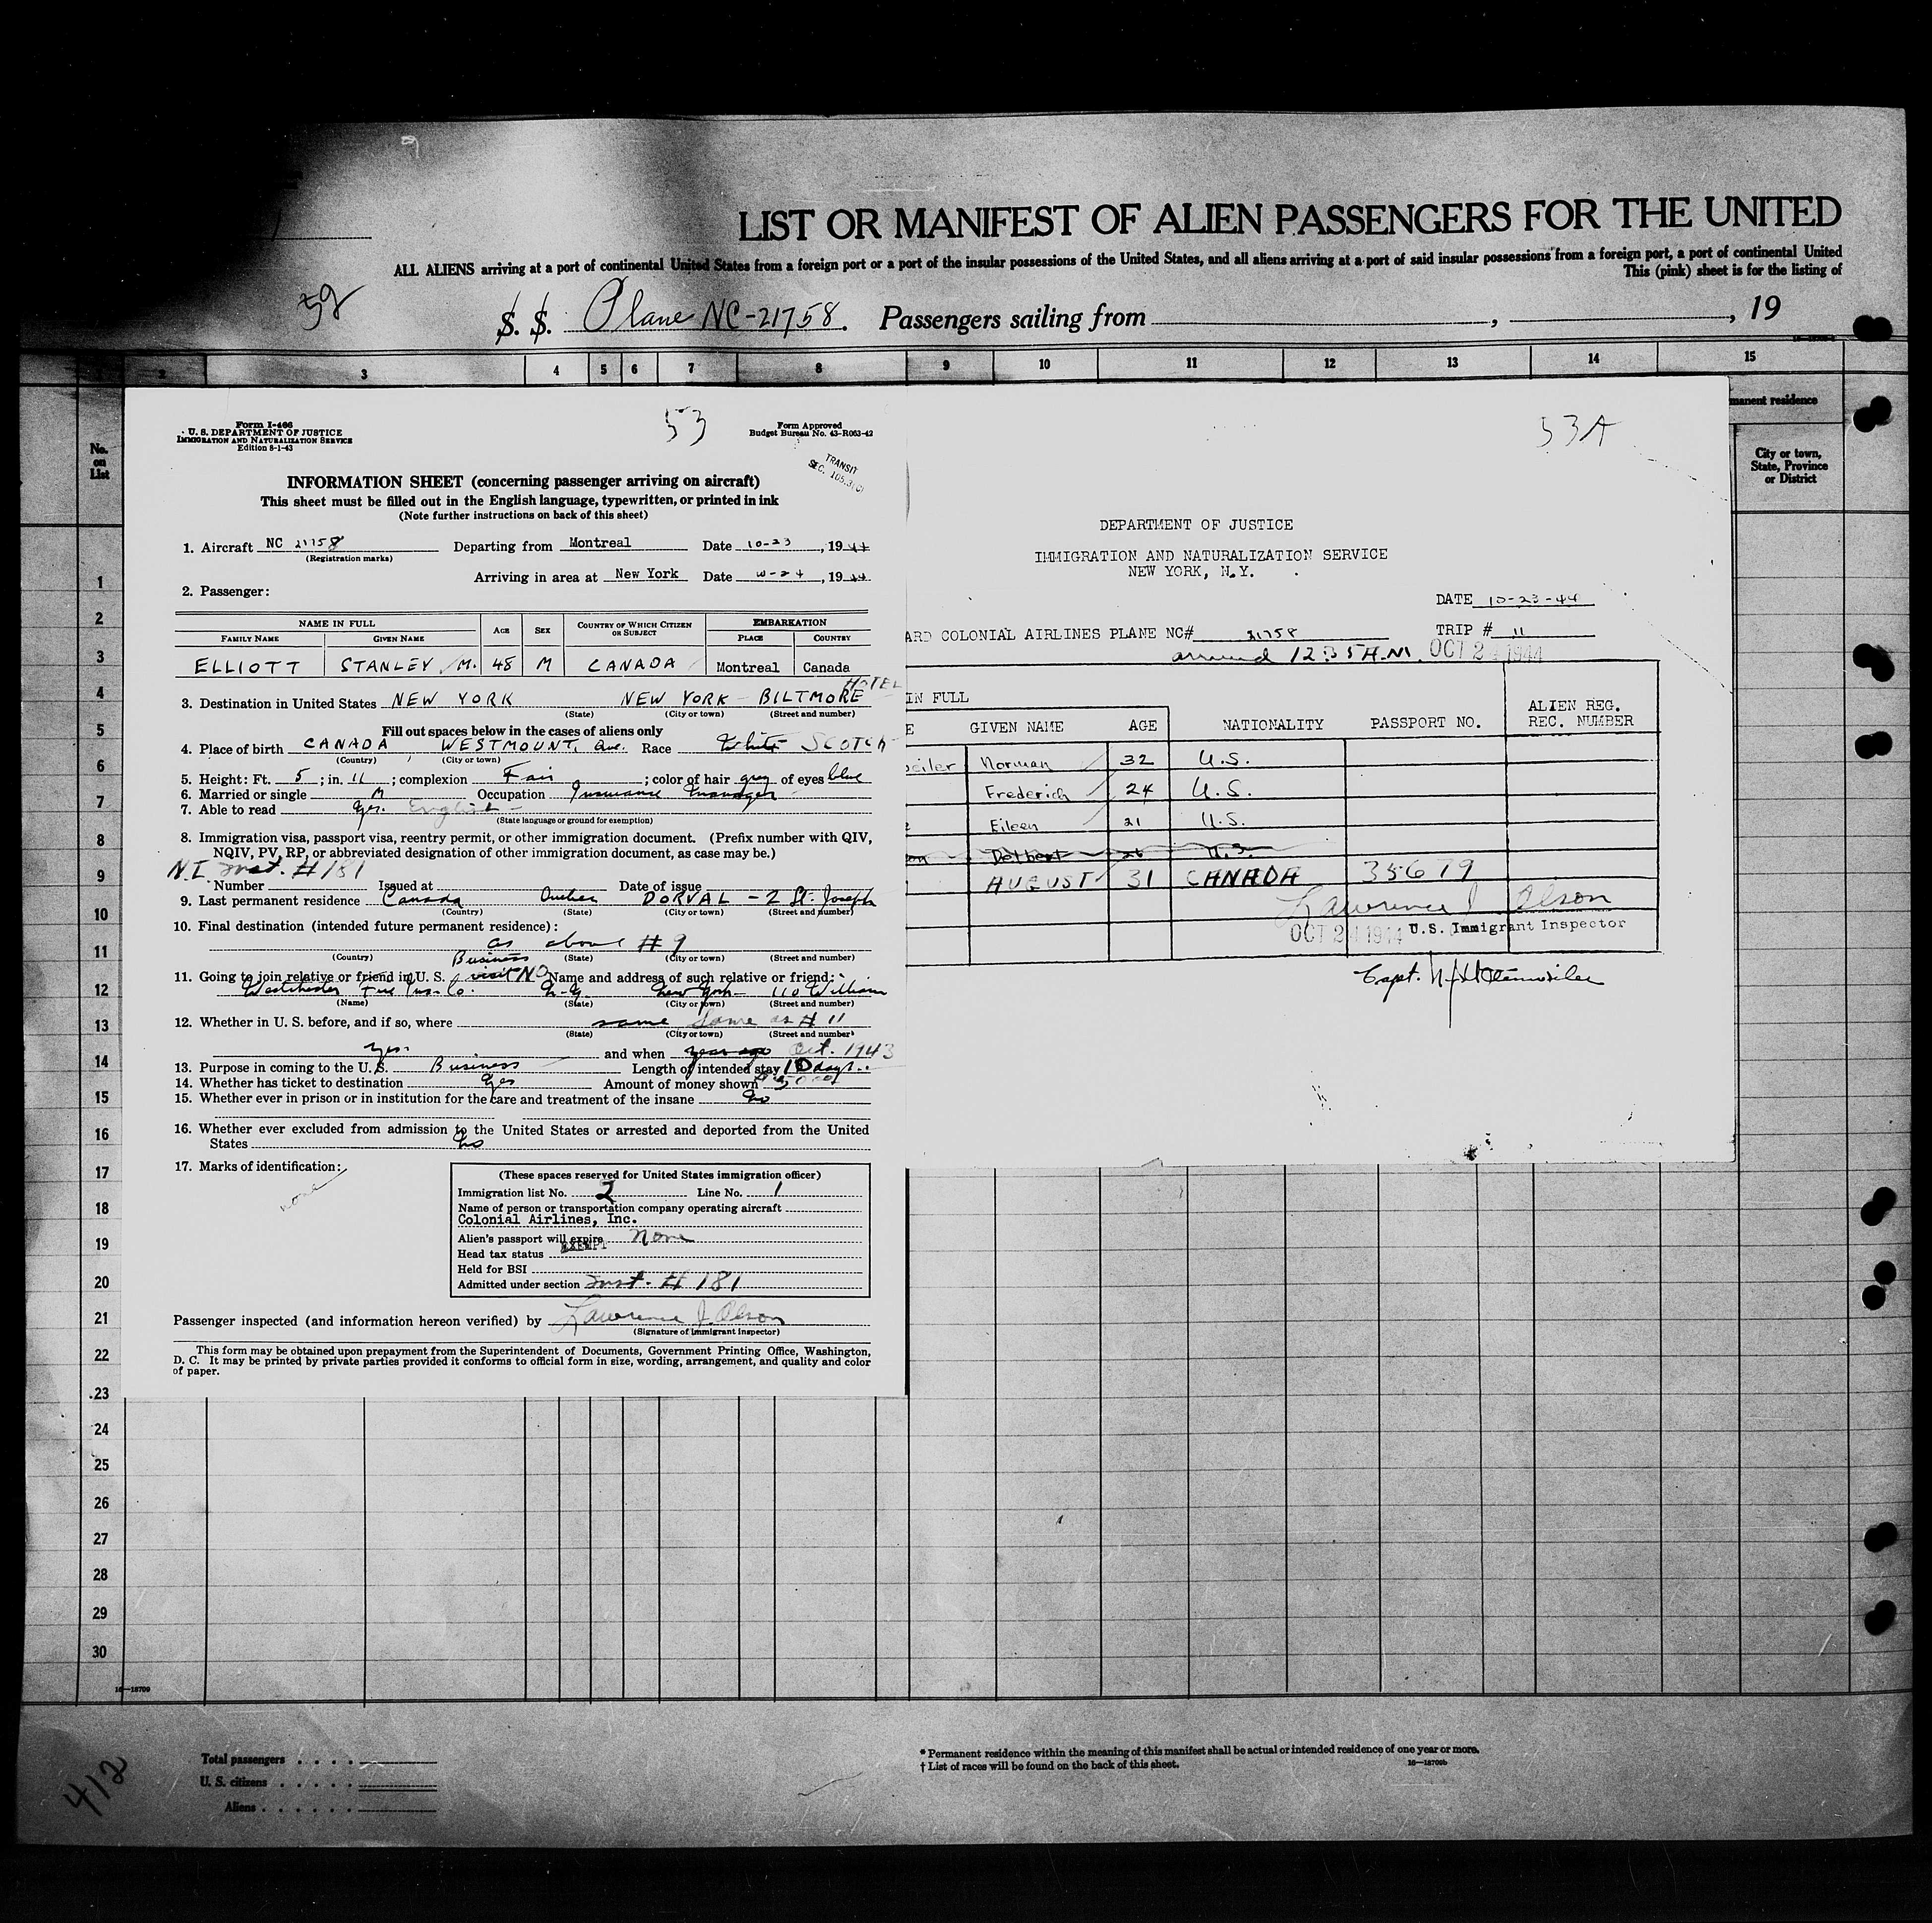 LIST OR MANIFEST OF ALIEN PASSENGERS FOR THE UNITED
ALL ALIENS arriving at a port of continental United States from a foreign port or a port of the insular possessions of the United States, and all aliens arriving at a port of said insular possessions from a foreign port, a port of continental United
This (pink) sheet is for the listing of
S. S. Plane NC-21758. Passengers sailing from , , 19
2 3 4 5 6 7 8 9 10 11 12 13 14 15
manent residence
No. on List
City or town, State, Province or District
Form I-466
U. S. DEPARTMENT OF JUSTICE
IMMIGRATION AND NATURALIZATION SERVICE
Edition 8-1-43
53
Form Approved
Budget Bureau No. 43-R063-42
TRANSIT
INFORMATION SHEET (concerning passenger arriving on aircraft)
This sheet must be filled out in the English language, typewritten, or printed in ink
(Note further instructions on back of this sheet)
1. Aircraft NC 21758 Departing from Montreal Date 10-23, 1944
(Registration marks)
Arriving in area at New York Date 10-24, 1944
2. Passenger:
NAME IN FULL AGE SEX COUNTRY OF WHICH CITIZEN OR SUBJECT EMBARKATION
FAMILY NAME GIVEN NAME PLACE COUNTRY
ELLIOTT STANLEY M. 48 M CANADA Montreal Canada
HOTEL
3. Destination in United States NEW YORK NEW YORK - BILTMORE
(State) (City or town) (Street and number)
Fill out spaces below in the cases of aliens only
4. Place of birth CANADA WESTMOUNT, Que. Race White SCOTCH
(Country) (City or town)
5. Height: Ft. 5; in. 11; complexion Fair; color of hair grey of eyes blue
6. Married or single M Occupation Insurance Manager
7. Able to read Yes. English
(State language or ground for exemption)
8. Immigration visa, passport visa, reentry permit, or other immigration document. (Prefix number with QIV,
NQIV, PV, RP, or abbreviated designation of other immigration document, as case may be.)
N.I. Inst. # 181
Number Issued at Date of issue
9. Last permanent residence Canada Quebec DORVAL - 2 St. Joseph
(Country) (State) (City or town) (Street and number)
10. Final destination (intended future permanent residence):
as above # 9
(Country) (State) (City or town) (Street and number)
Business
11. Going to join relative or friend in U. S. visit NO Name and address of such relative or friend:
Westchester Fire Ins. Co. N.Y. New York - 110 William
(Name) (State) (City or town) (Street and number)
12. Whether in U. S. before, and if so, where same Same as # 11
(State) (City or town) (Street and number)
yes and when year ago Oct. 1943
13. Purpose in coming to the U. S. Business Length of intended stay 10 days
14. Whether has ticket to destination Yes Amount of money shown
15. Whether ever in prison or in institution for the care and treatment of the insane no
16. Whether ever excluded from admission to the United States or arrested and deported from the United
States no
17. Marks of identification:
none
(These spaces reserved for United States immigration officer)
Immigration list No. 2 Line No. 1
Name of person or transportation company operating aircraft
Colonial Airlines, Inc.
Alien's passport will expire None
Head tax status EXEMPT
Held for BSI
Admitted under section Inst. # 181
Passenger inspected (and information hereon verified) by Lawrence J. Olson
(Signature of Immigrant Inspector)
This form may be obtained upon prepayment from the Superintendent of Documents, Government Printing Office, Washington,
D. C. It may be printed by private parties provided it conforms to official form in size, wording, arrangement, and quality and color
of paper.
53A
DEPARTMENT OF JUSTICE
IMMIGRATION AND NATURALIZATION SERVICE
NEW YORK, N.Y.
DATE 10-23-44
ARD COLONIAL AIRLINES PLANE NC# 21758 TRIP # 11
arrived 12:35 A.M. OCT 24 1944
IN FULL
E GIVEN NAME AGE NATIONALITY PASSPORT NO. ALIEN REG. REC. NUMBER
weiler Norman 32 U.S.
Frederick 24 U.S.
Eileen 21 U.S.
on Delbert 26 U.S.
AUGUST 31 CANADA 35679
Lawrence J Olson
OCT 24 1944 U.S. Immigrant Inspector
1
2
3
4
5
6
7
8
9
10
11
12
13
14
15
16
17
18
19
20
21
22
23
24
25
26
27
28
29
30
16-18709
Total passengers
U. S. citizens
Aliens
412
* Permanent residence within the meaning of this manifest shall be actual or intended residence of one year or more.
† List of races will be found on the back of this sheet.
16-18709b